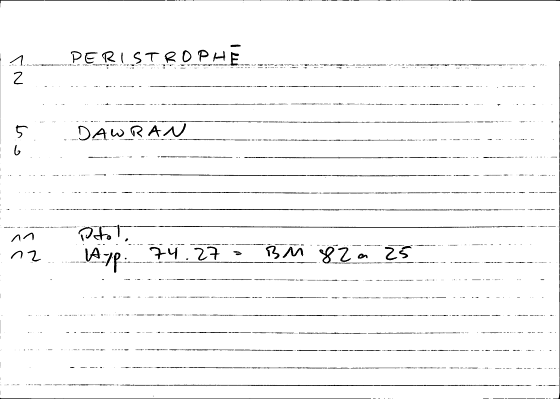 1 PERISTROPHĒ
2
5 DAWRAN
6
11 Ptol.
12 Hyp. 74.27 = BM 82a 25